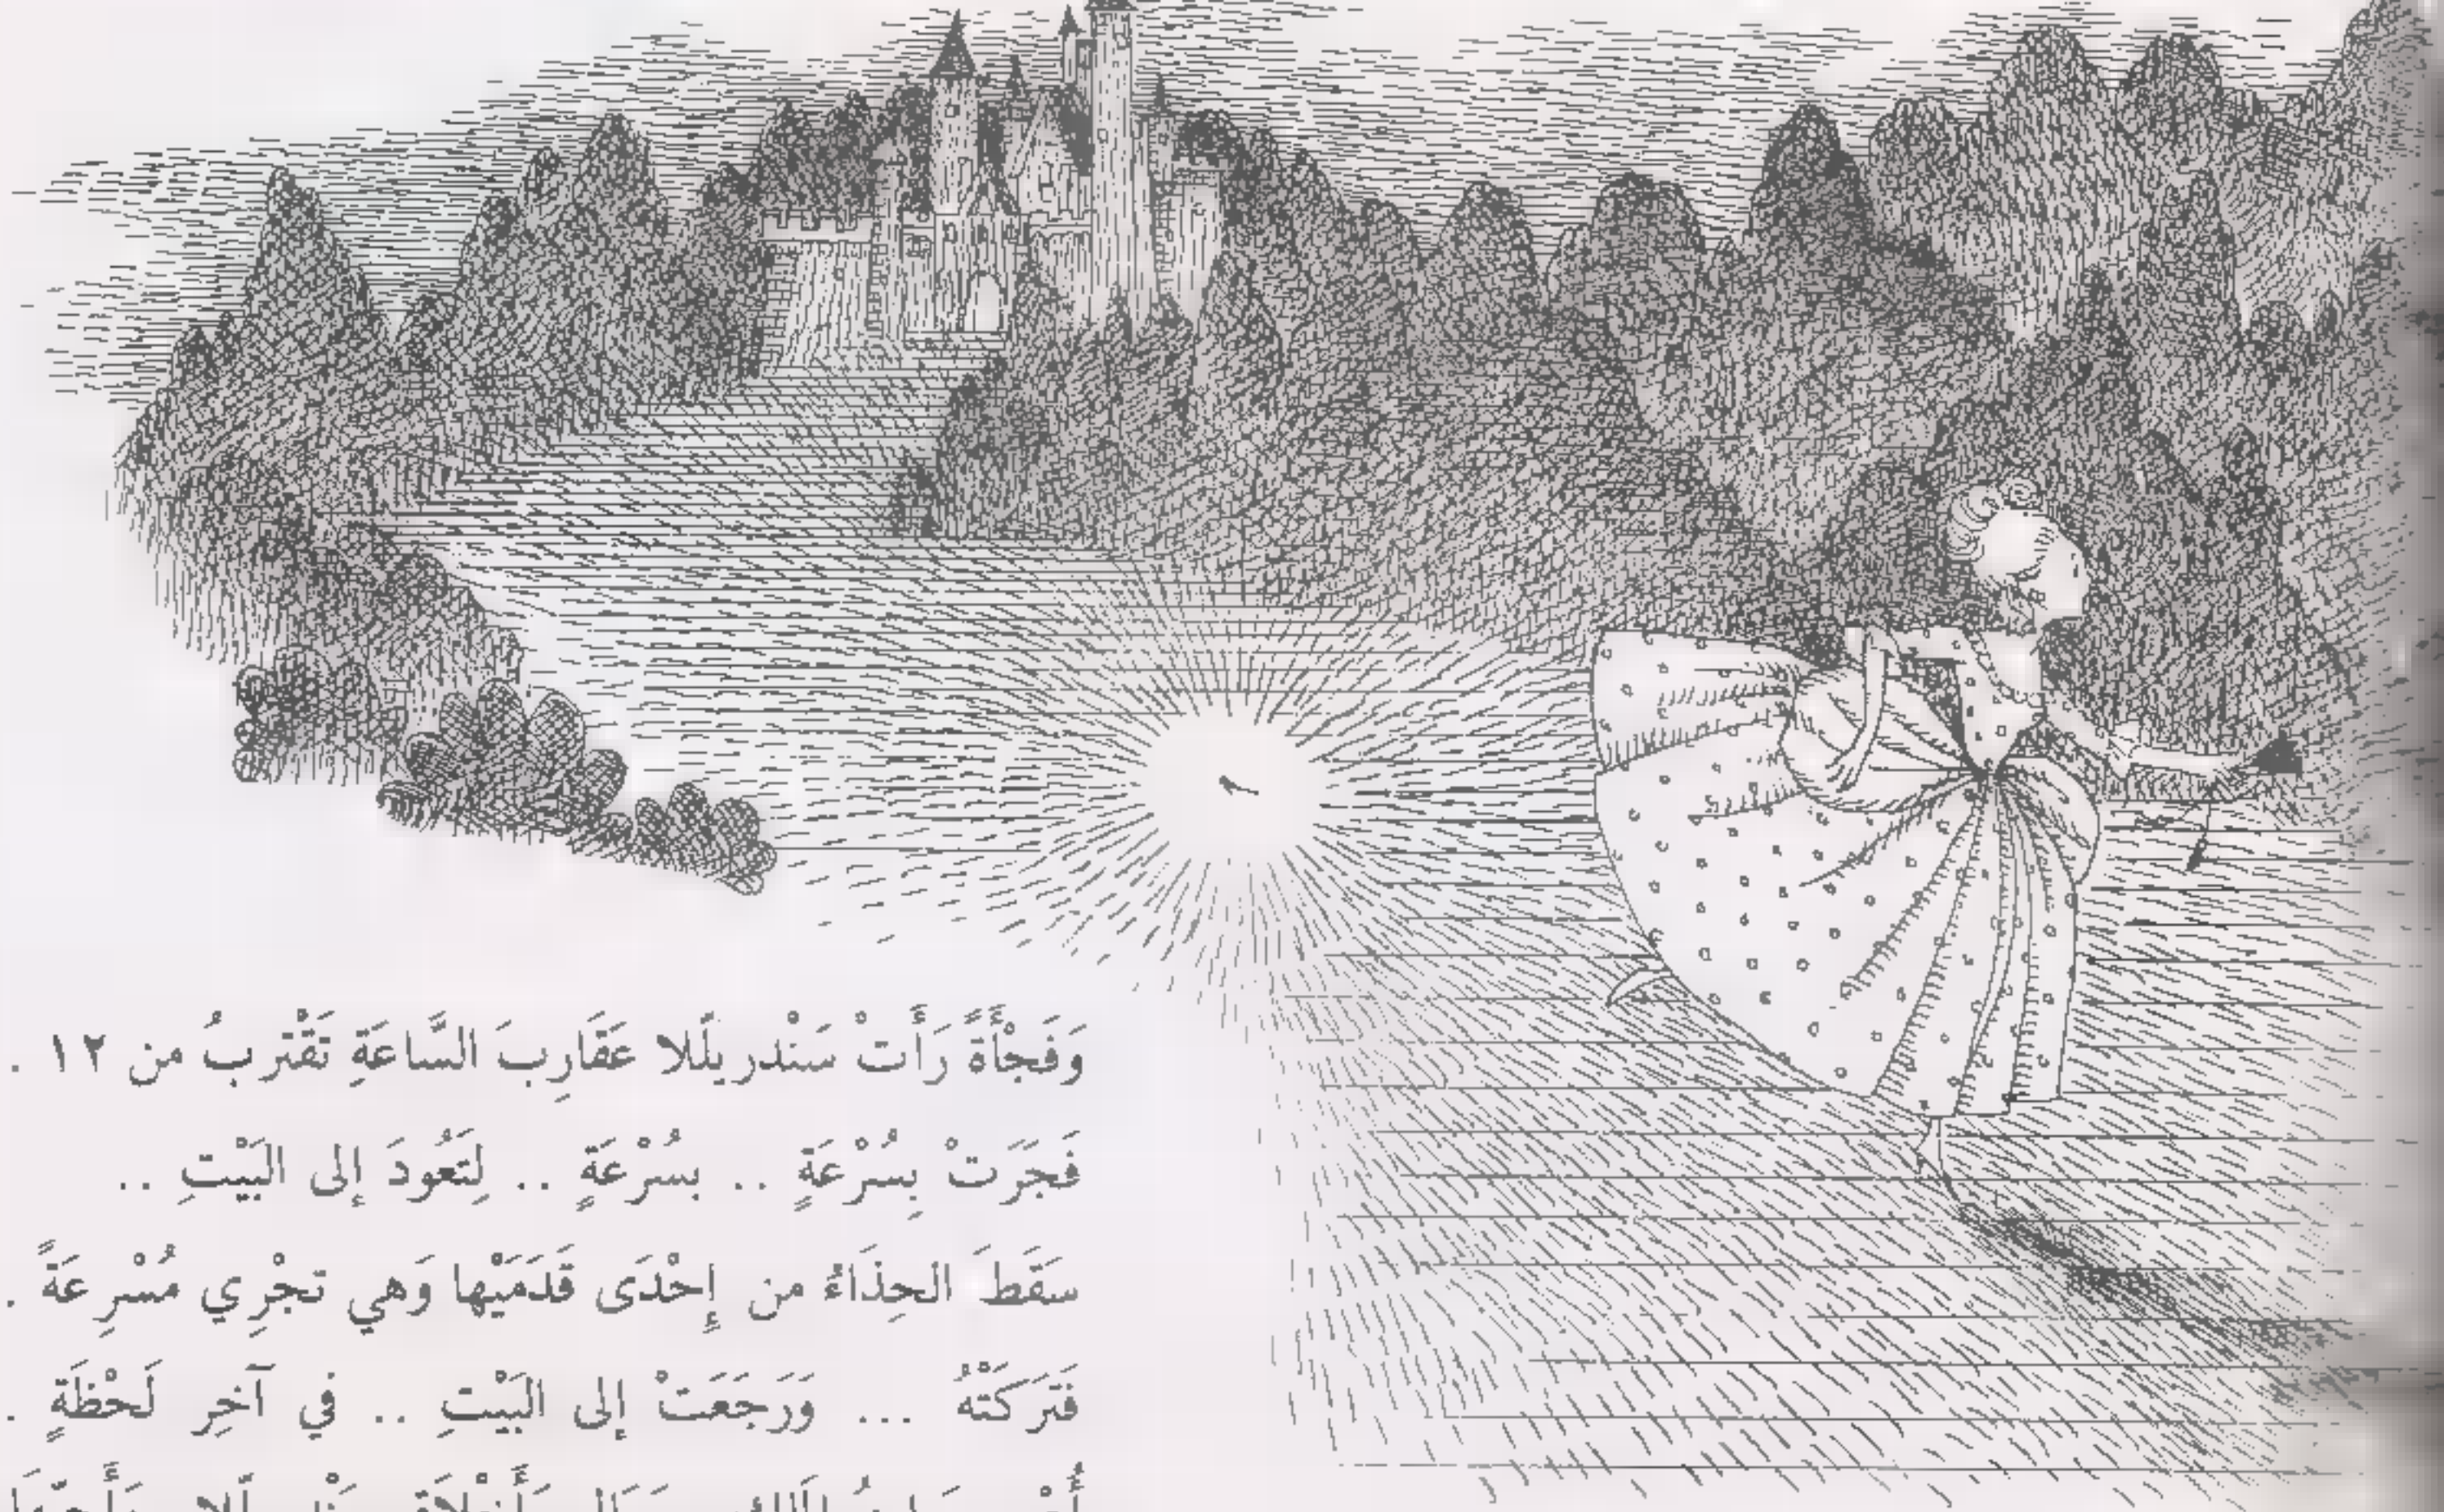 وَفَجْأَةً رَأَتْ سَنْدريلّلا عَقَارِبَ السَّاعَةِ تَقْتَربُ من ١٢ .
فَجَرَتْ بِسُرْعَةٍ .. بسُرْعَةٍ .. لِتَعُودَ إِلى البَيْتِ ..
سَقَطَ الحِذَاءُ من إِحْدَى قَدَمَيْها وَهي تجْرِي مُسْرِعَةً .
فَتَرَكَتْهُ ... وَرَجَعَتْ إِلى البَيْتِ .. في آخِر لَحْظَةٍ .